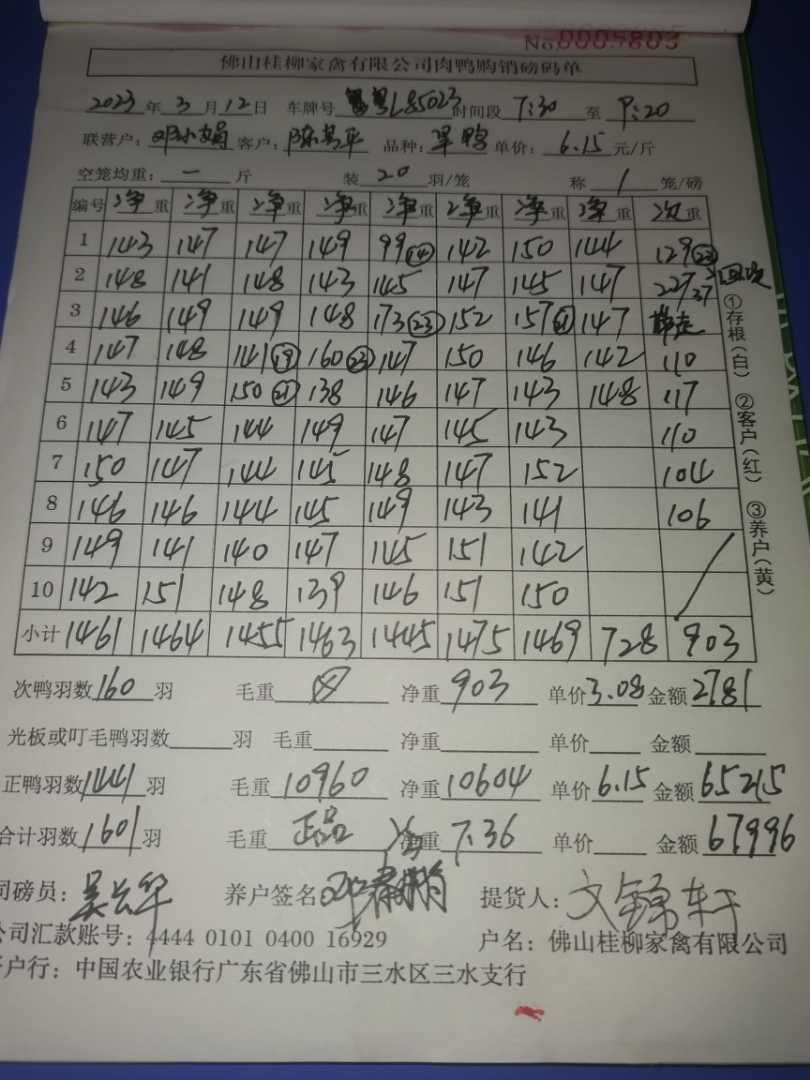 No.0005803
佛山桂柳家禽有限公司肉鸭购销磅码单
2023年3月12日 车牌号 粤L85023 时间段 7:30 至 9:20
联营户:邓小娟 客户: 品种:旱鸭 单价:6.15元/斤
空笼均重:一斤 装20羽/笼 称1笼/磅
编号 净重 净重 净重 净重 净重 净重 净重 净重 次重
1 143 147 147 149 99⑭ 142 150 144 129㉓
2 148 141 148 143 145 147 145 147 227 37
3 146 149 149 148 173㉓ 152 157㉑ 147
4 147 148 141⑲ 160㉓ 147 150 146 142 110
5 143 149 150㉑ 138 146 147 143 148 117
6 147 145 144 149 147 145 143 110
7 150 147 144 145 148 147 152 104
8 146 146 144 145 149 143 141 106
9 149 141 140 147 145 151 142
10 142 151 148 139 146 151 150
小计 1461 1464 1455 1463 1445 1475 1469 728 903
①存根(白) ②客户(红) ③养户(黄)
次鸭羽数160羽 毛重 净重903 单价3.08 金额2781
光板或叮毛鸭羽数 羽 毛重 净重 单价 金额
正鸭羽数1441羽 毛重10960 净重10604 单价6.15 金额65215
合计羽数1601羽 毛重正品 净重7.36 单价 金额67996
司磅员:吴云华 养户签名 提货人:文锦轩
公司汇款账号:4444 0101 0400 16929 户名:佛山桂柳家禽有限公司
开户行:中国农业银行广东省佛山市三水区三水支行